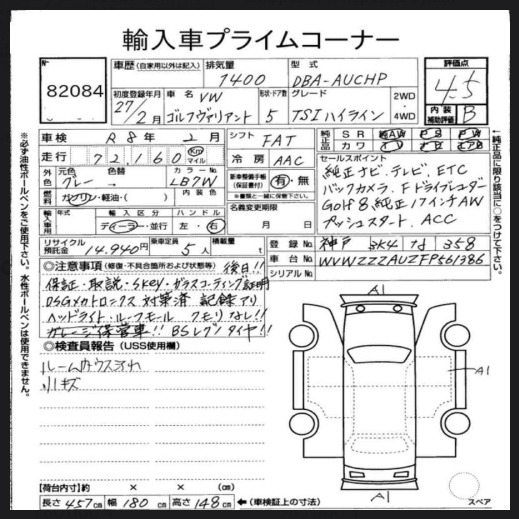 輸入車プライムコーナー
No
82084
車歴 (自家用以外は記入)
排気量 1400
型式 DBA-AUCHP
評価点 4.5
初度登録年月 27/2月
車名 VW ゴルフヴァリアント
形状・ドア数 5
グレード TSIハイライン
2WD・4WD
内装補助評価 B
車検 R8年 2月
シフト FAT
純正品 SR AW PS PW
純正品 カワ ナビ TV エアB
走行 72,160 Km マイル
冷房 AAC
セールスポイント
純正ナビ、テレビ、ETC
バックカメラ、Fドライブレコーダー
Golf8純正17インチAW
プッシュスタート、ACC
外色 元色 グレー → 色替
カラーNo. LB7W
新車整備手帳(保証書付) 有・無
燃料 ガソリン・軽油・( )
内装色
輸入車用 年式
輸入区分 ディーラー・並行
ハンドル 左・右
名義変更期限 月 日
リサイクル預託金 14,940円
乗車定員 5人
積載量 t
登録No. 神戸 3K4L な 358
車台No. WVWZZZAUZFP561386
シリアルNo.
◎注意事項 (修復・不具合箇所および状態等) 後日!!
保証・取説・Skey・ガラスコーティング証明
DSGメカトロニクス対策済 記録アリ
ヘッドライト・ルーフモール クモリなし!!
ガレージ保管車!! BSレグノタイヤ!!
◎検査員報告 (USS使用欄)
小キズ
A1
A1
A1
スペア
【荷台内寸】約 × × (cm)
長さ 457cm 幅 180cm 高さ 148cm ←(車検証上の寸法)
※必ず油性ボールペンをご使用下さい。水性ボールペンは使用できません。